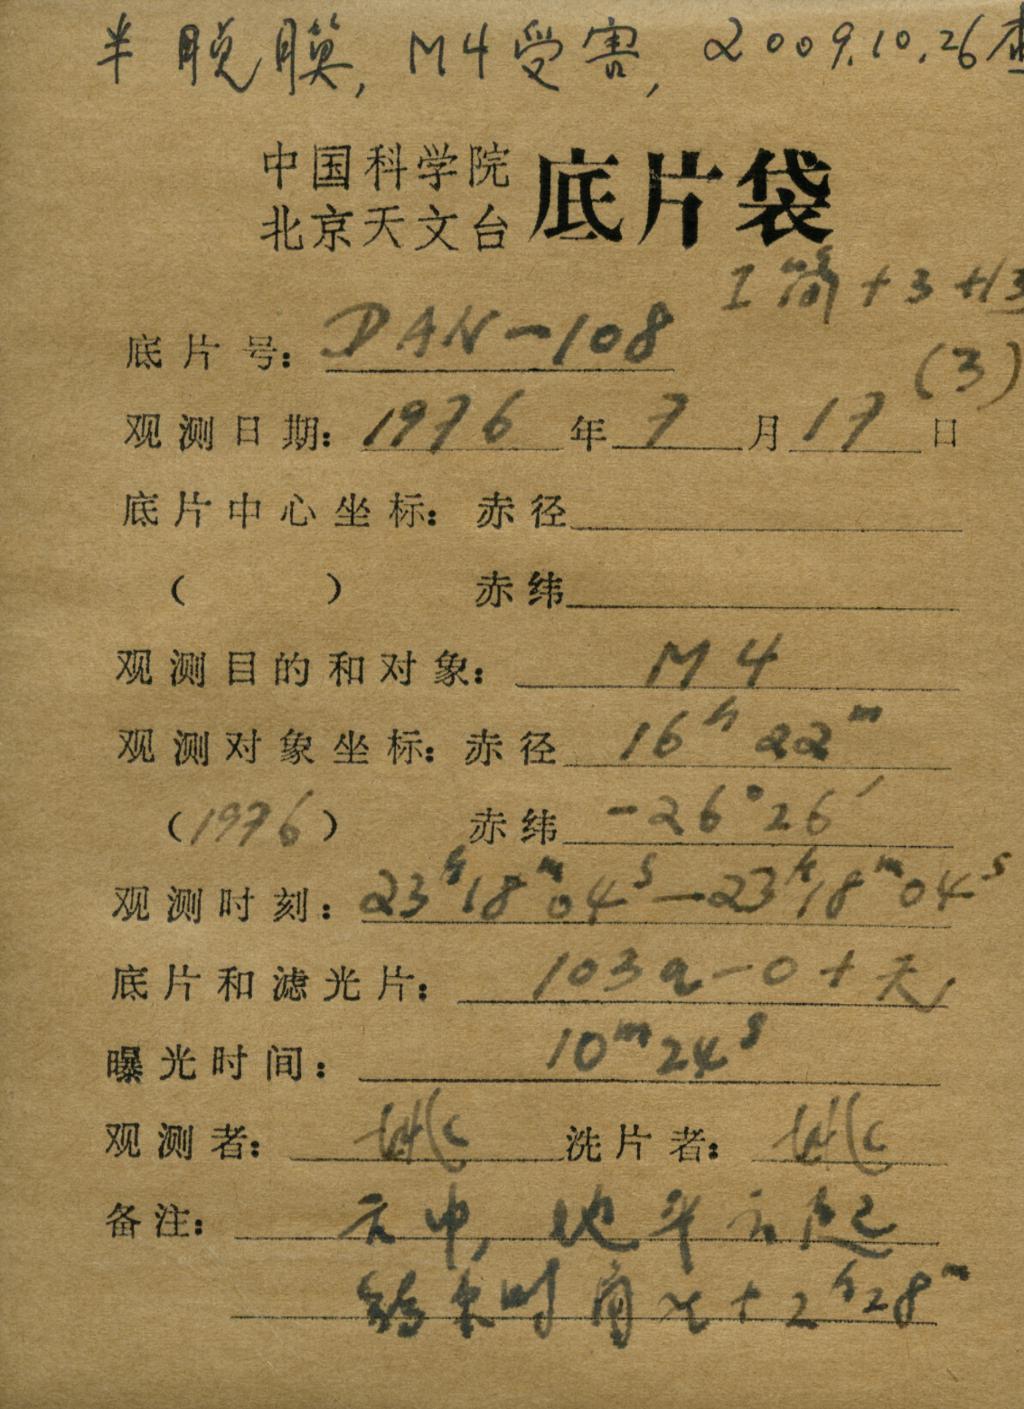 半脱膜, M4受害, 2009.10.26查
中国科学院
北京天文台 底片袋
I 简+3+13
底片号: DAN-108
(3)
观测日期: 1976年7月17日
底片中心坐标: 赤径
( ) 赤纬
观测目的和对象: M4
观测对象坐标: 赤径 16h 22m
(1976) 赤纬 -26°26′
观测时刻: 23h18m04s—23h18m04s
底片和滤光片: 103a-O+天
曝光时间: 10m24s
观测者: 姚 洗片者: 姚
备注: 天中, 地平云起
结束时角 t+2h28m